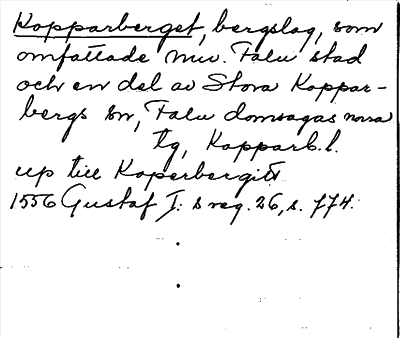 Kopparberget, bergslag, som
omfattade nuv. Falu stad
och en del av Stora Koppar-
bergs sn, Falu domsagas norra
tg, Kopparb.l.
up till Koperbergitt
1556 Gustaf I:s reg. 26, s. 774.